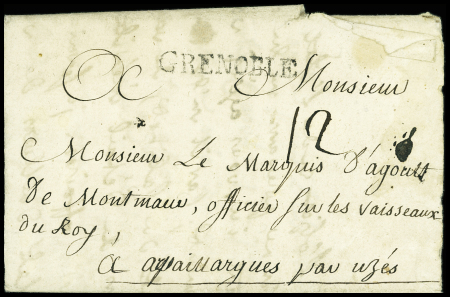 GRENOBLE
A Monsieur
12
Monsieur Le Marquis D'agoult
De Montmaur, officier sur les vaisseaux
du Roy,
à arpaillargues par uzés